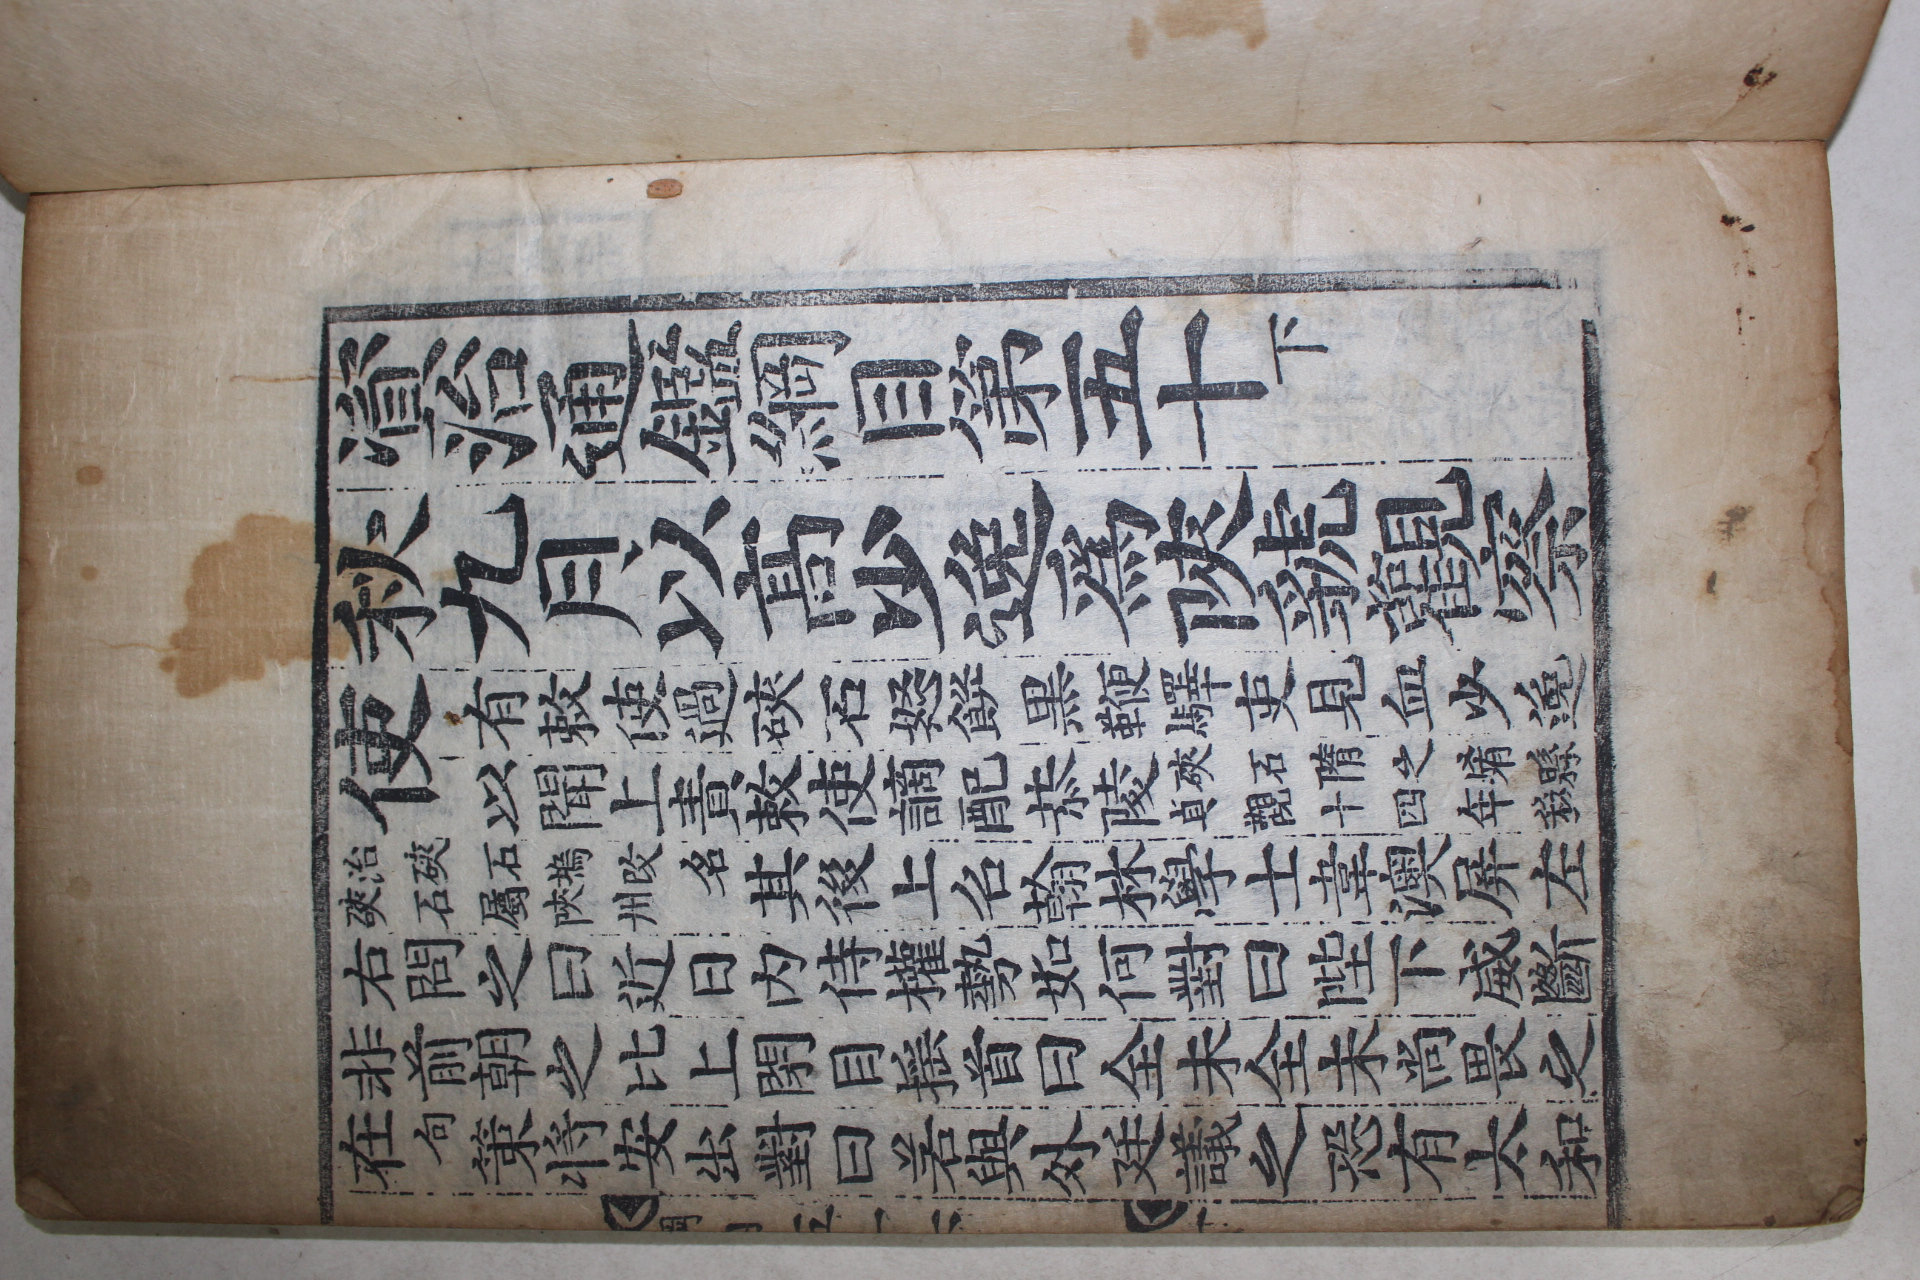 資治通鑑綱目第五十下
秋九月以高少逸爲陝虢觀察
使
有敕使過硤石怒餅黑鞭驛吏見血少逸
以聞上責敕使謫配恭陵
硤石隋之崤縣
貞觀十四年移
治硤石塢改名
硤石屬陝州
其後上召翰林學士韋澳屏左
右問之曰近日内侍權勢如何對曰陛下威斷
非前朝之比上閉目揺首曰全未全未尚畏之
在句策將安出對曰若與外廷議之恐有太和